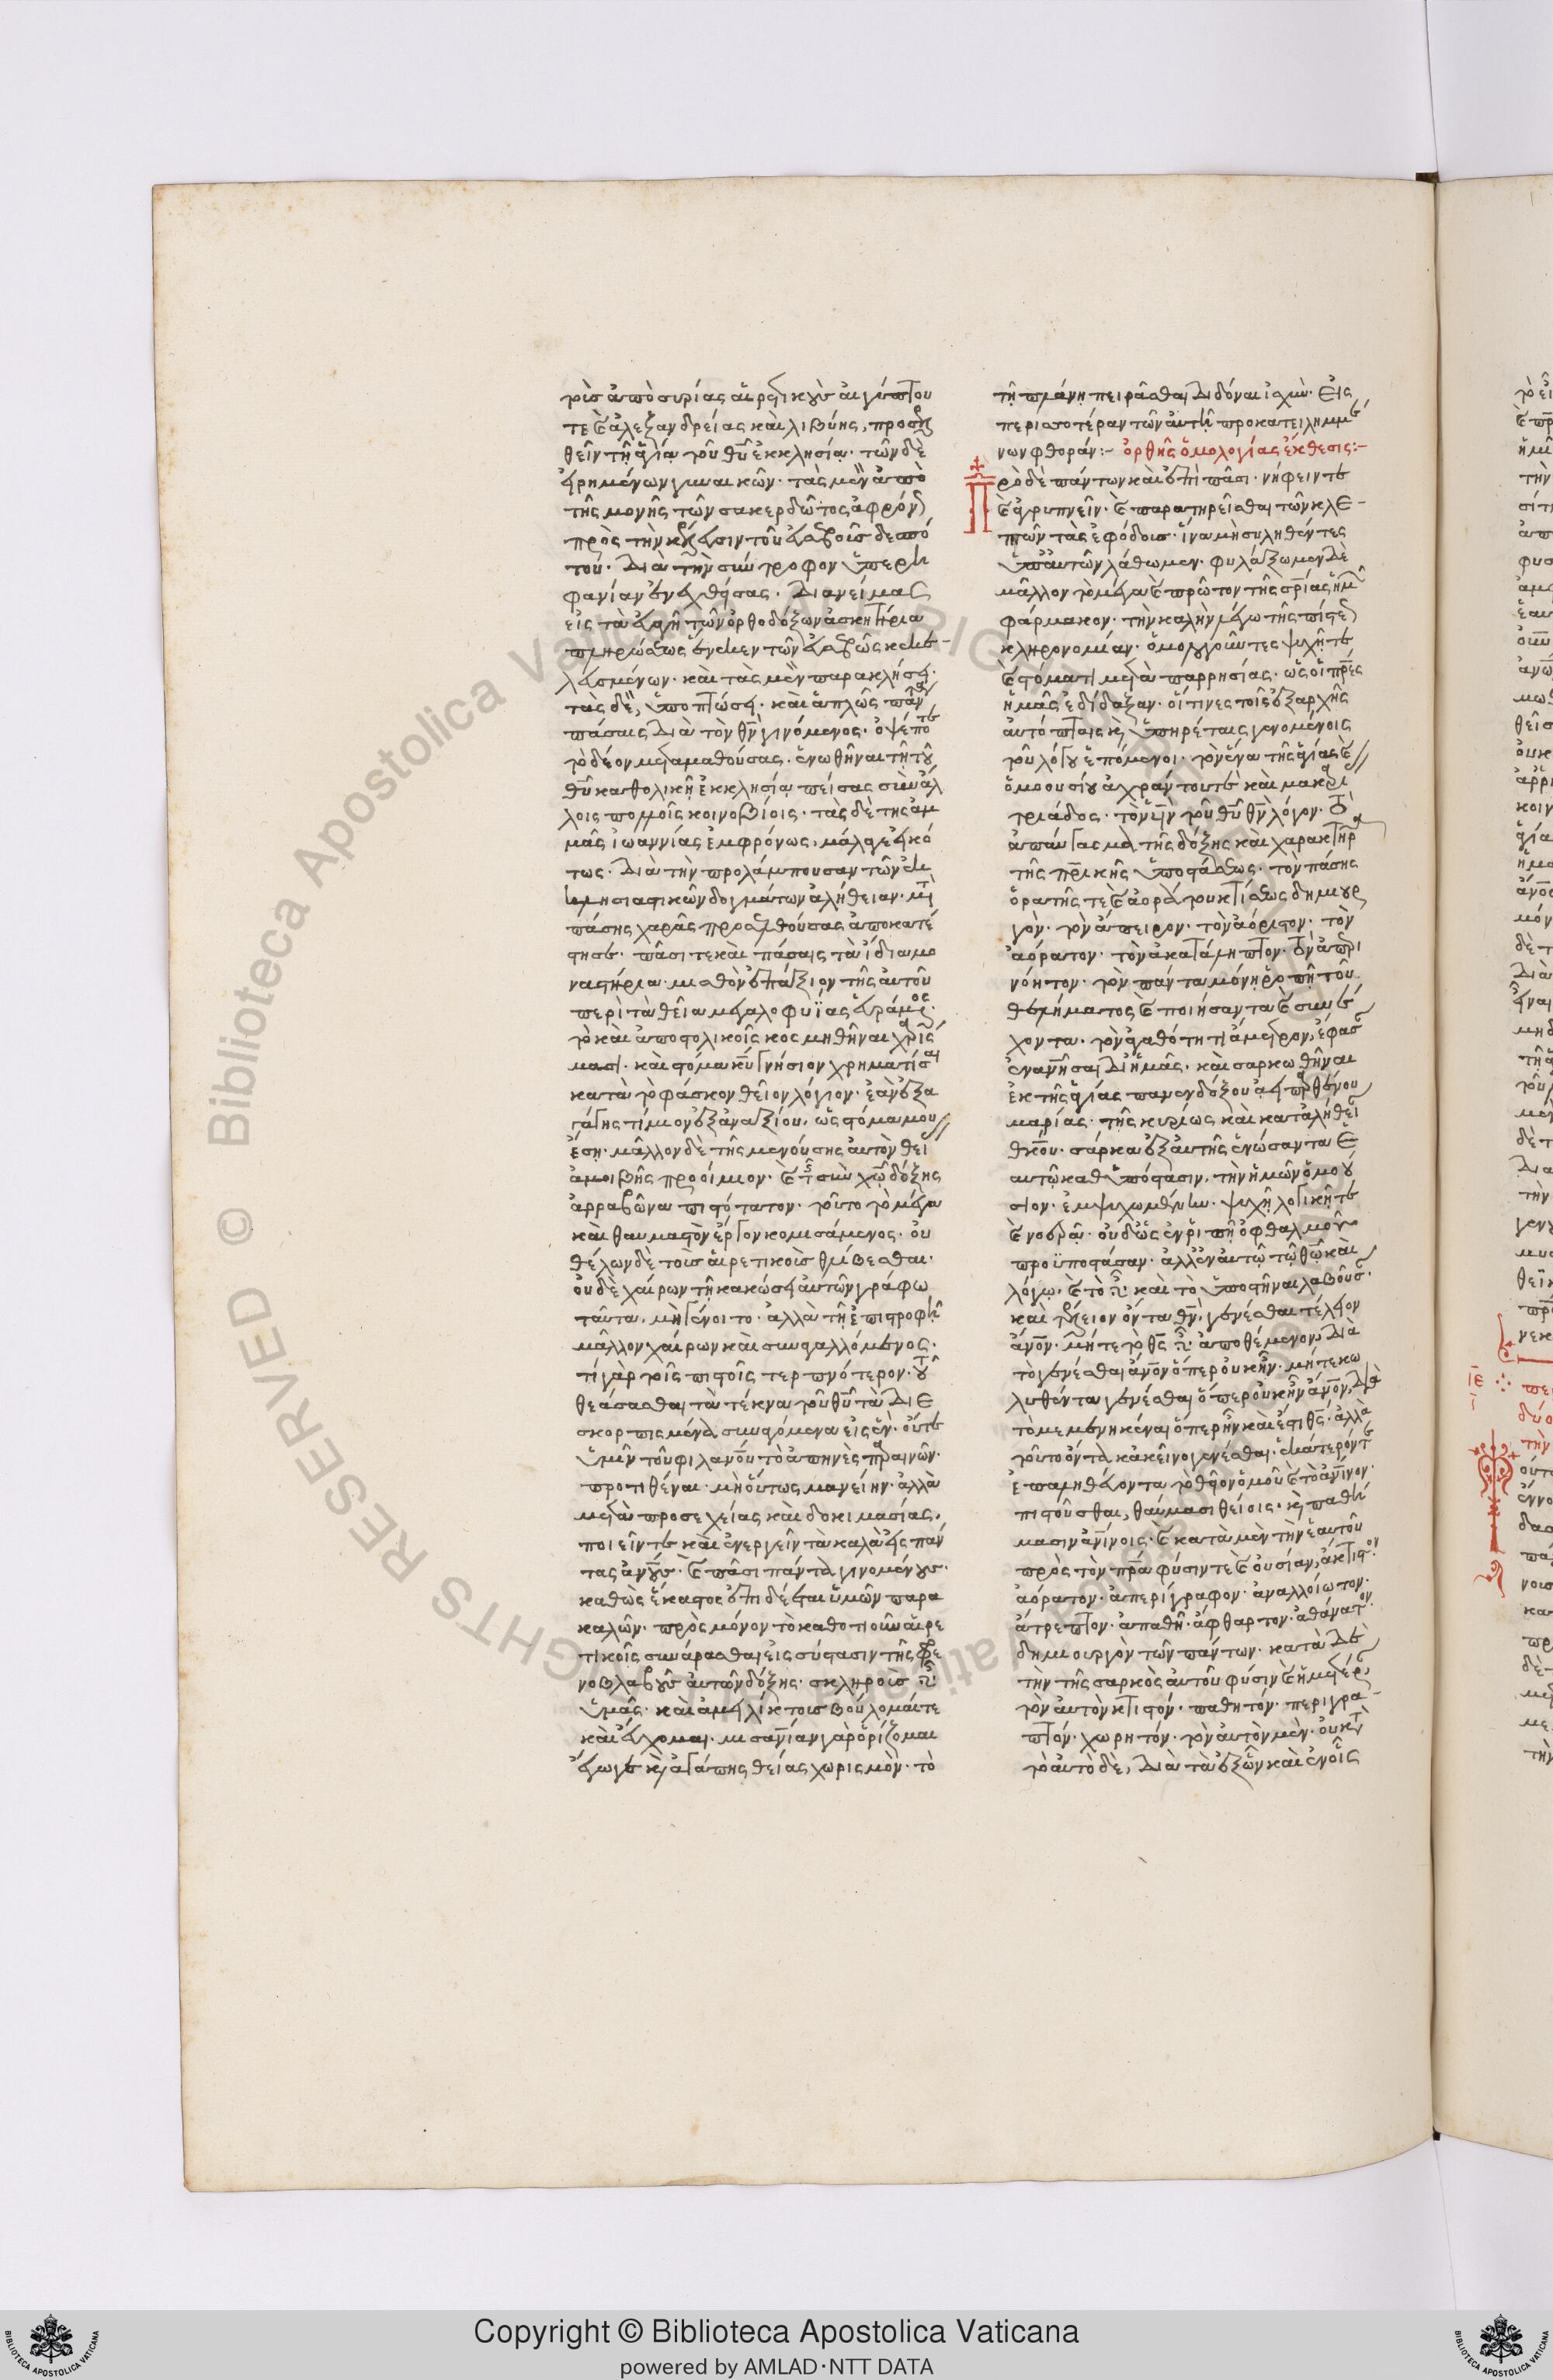 τοὺς ἀπὸ συρίας αἱρετικοὺς αἰγύπτου
τε καὶ ἀλεξανδρείας καὶ λιβύης, προσελ
θεῖν τῇ ἁγίᾳ τοῦ θῦ ἐκκλησίᾳ. τῶν δὲ
εἰρημένων γυναικῶν. τὰς μὲν ἀπὸ
τῆς μονῆς τῶν σακερδῶτος ἀφρόν
πρὸς τὴν τοῦ εὐσεβοῦς δεσπό
του. διὰ τὴν σύντροφον ὑπερη
φανίαν ἐνεχθείσας. διανείμας
εἰς τὰ εὐαγῆ τῶν ὀρθοδόξων ἀσκητήρια
τῶν εὐσεβῶς κεκε
λευσμένων. καὶ τὰς μὲν παρακλήσει.
τὰς δὲ, ὑποπτώσει. καὶ ἁπλῶς
πάσαις διὰ τὸν θν γινόμενος. ὀψέποτε
τὸ δέον μεταμαθούσας. ἑνωθῆναι τῇ τοῦ
θῦ καθολικῇ ἐκκλησίᾳ πείσας σὺν ἀλ
λοις πολλοῖς κοινοβίοις. τὰς δὲ τῆς ἀμ
μᾶς ἰωαννίας ἐμφρόνως, μάλα γε εἰκό
τως. διὰ τὴν προλάμπουσαν τῶν ἐκ
κλησιαστικῶν δογμάτων ἀλήθειαν. μετὰ
πάσης χαρᾶς προσελθούσας ἀποκατέ
στησε. πᾶσί τε καὶ πάσαις τὰ ἴδια μο
ναστήρια. μισθὸν ἐπάξιον τῆς αὐτοῦ
περὶ τὰ θεῖα μεγαλοφυΐας
τὸ καὶ ἀποστολικοῖς κοσμηθῆναι
μασι. καὶ στόμα κῦ γνήσιον χρηματίσαι
κατὰ τὸ φάσκον θεῖον λόγιον. ἐὰν ἐξα
γάγῃς τίμιον ἐξ ἀναξίου, ὡς στόμα μου
ἔσῃ. μᾶλλον δὲ τῆς μενούσης αὐτὸν θεί
ἀμοιβῆς προοίμιον. καὶ τῆς σὺν χῶ δόξης
ἀρραβῶνα πιστότατον. τοῦτο τὸ μέγα
καὶ θαυμαστὸν ἔργον κομισάμενος. οὐ
θέλων δὲ τοὺς αἱρετικοὺς θλίβεσθαι.
οὐδὲ χαίρων τῇ κακώσει αὐτῶν γράφω
ταῦτα, μὴ γένοιτο. ἀλλὰ τῇ ἐπιστροφῇ
μᾶλλον χαίρων καὶ συναγαλλόμενος.
τί γὰρ τοῖς πιστοῖς τερπνότερον. τοῦ
θεάσασθαι τὰ τέκνα τοῦ θῦ τὰ διε
σκορπισμένα συναγόμενα εἰς ἕν. οὔτε
ὑμῖν τοῦ φιλανου τὸ ἀπηνὲς παραινῶν
προτιθέναι. μὴ οὕτως μανείην. ἀλλὰ
μετὰ προσεχείας καὶ δοκιμασίας,
ποιεῖν τε καὶ ἐνεργεῖν τὰ καλὰ εἰς πάν
τας ἀνους. καὶ πᾶσι πάντα γινομένους.
καθὼς ἕκαστος ἐπιδέεται ὑμῶν παρα
καλῶν. πρὸς μόνον τὸ καθοτιοῦν αἱρε
τικοῖς συνάρασθαι εἰς σύστασιν τῆς φρε
νοβλαβοῦς αὐτῶν δόξης. σκληροὺς εἶναι
ὑμᾶς. καὶ ἀμειλίκτους βούλομαί τε
καὶ εὔχομαι. μισανίαν γὰρ ὁρίζομαι
ἔγωγε καὶ ἀγάπης θείας χωρισμὸν. τὸ
τῇ πλάνῃ πειρᾶσθαι διδόναι ἰσχὺν. εἰς
περισσοτέραν τῶν αὐτῇ προκατειλημμέ
νων φθοράν:- ὀρθῆς ὁμολογίας ἔκθεσις:-
Πρὸ δὲ πάντων καὶ ἐπὶ πᾶσι. νήφειν τε
καὶ ἀγρυπνεῖν. καὶ παρατηρεῖσθαι τῶν κλε
πτῶν τὰς ἐφόδους. ἵνα μὴ συληθέντες
ὑπ' αὐτῶν λάθωμεν. φυλάξωμεν δὲ
μᾶλλον τὸ μέγα καὶ πρῶτον τῆς σριας ἡμῶν
φάρμακον. τὴν καλὴν λέγω τῆς πίστεως
κληρονομίαν. ὁμολογοῦντες ψυχῇ τε
καὶ στόματι μετὰ παρρησίας. ὡς οἱ πρες
ἡμᾶς ἐδίδαξαν. οἵτινες τοῖς ἐξ ἀρχῆς
αὐτόπταις καὶ ὑπηρέταις γενομένοις
τοῦ λόγου ἑπόμενοι. τὸν ἕνα τῆς ἁγίας καὶ
ὁμοουσίου ἀχράντου τε καὶ μακαρί
τριάδος. τὸν υν τοῦ θῦ θν λόγον. τὸ
ἀπαύγασμα τῆς δόξης καὶ χαρακτῆρα
τῆς πρικῆς ὑποστάσεως. τὸν πάσης
ὁρατῆς τε καὶ ἀοράτου κτίσεως δημιουρ
γὸν. τὸν ἄπειρον. τὸν ἀόριστον, τὸν
ἀόρατον. τὸν ἀκατάληπτον. τὸν ἀπερι
νόητον. τὸν πάντα μόνῃ ῥοπῇ τοῦ
θελήματος καὶ ποιήσαντα καὶ συνέ
χοντα. τὸν ἀγαθότητι ἄμετρον, ἔφασαν
ἐνανῆσαι δι' ἡμᾶς. καὶ σαρκωθῆναι
ἐκ τῆς ἁγίας πανενδόξου ἀειπαρθένου
μαρίας. τῆς κυρίως καὶ κατ' ἀλήθει
θκου. σάρκα ἐξ αὐτῆς ἑνώσαντα ἑ
αυτῷ καθ' ὑπόστασιν, τὴν ἡμῶν ὁμοού
σιον. ἐμψυχωμένην. ψυχῇ λογικῇ τε
καὶ νοερᾷ. οὐδ' ὡς ἐν ῥιπῇ ὀφθαλμοῦ
προϋποστᾶσαν. ἀλλ' ἐν αὐτῷ τῷ θῶ καὶ
λόγῳ. καὶ τὸ εἶναι καὶ τὸ ὑποστῆναι λαβοῦσ.
καὶ τέλειον ὄντα θν, γενέσθαι τέλειον
ἄνον. μήτε τὸ θς εἶναι ἀποθέμενον, διὰ
τὸ γενέσθαι ἄνον ὅπερ οὐκ ἦν. μήτε κω
λυθέντα γενέσθαι ὅπερ οὐκ ἦν ἄνον, διὰ
τὸ μεμενηκέναι ὅπερ ἦν καὶ ἔστι θς. ἀλλὰ
τοῦτο ὄντα κἀκεῖνο γενέσθαι. ἑκάτερόν τε
ἐπαληθεύοντα τὸ θεῖον ὁμοῦ καὶ τὸ ἀνινον.
πιστοῦσθαι, θαύμασι θείοις. καὶ παθή
μασιν ἀνίνοις. καὶ κατὰ μὲν τὴν ἑαυτοῦ
πρὸς τὸν πρα φύσιν τε καὶ οὐσίαν, ἄκτιστον.
ἀόρατον. ἀπερίγραφον. ἀναλλοίωτον.
ἄτρεπτον. ἀπαθῆ. ἄφθαρτον. ἀθάνατον.
δημιουργὸν τῶν πάντων. κατὰ δὲ
τὴν τῆς σαρκὸς αὐτοῦ φύσιν καὶ ἡμετέραν
τὸν αὐτὸν κτιστόν. παθητόν. περιγρα
πτόν. χωρητόν. τὸν αὐτὸν μὲν. οὐ κατὰ
τὸ αὐτὸ δὲ, διὰ τὰ ἐξ ὧν καὶ ἐν οἷς
Copyright © Biblioteca Apostolica Vaticana
powered by AMLAD·NTT DATA